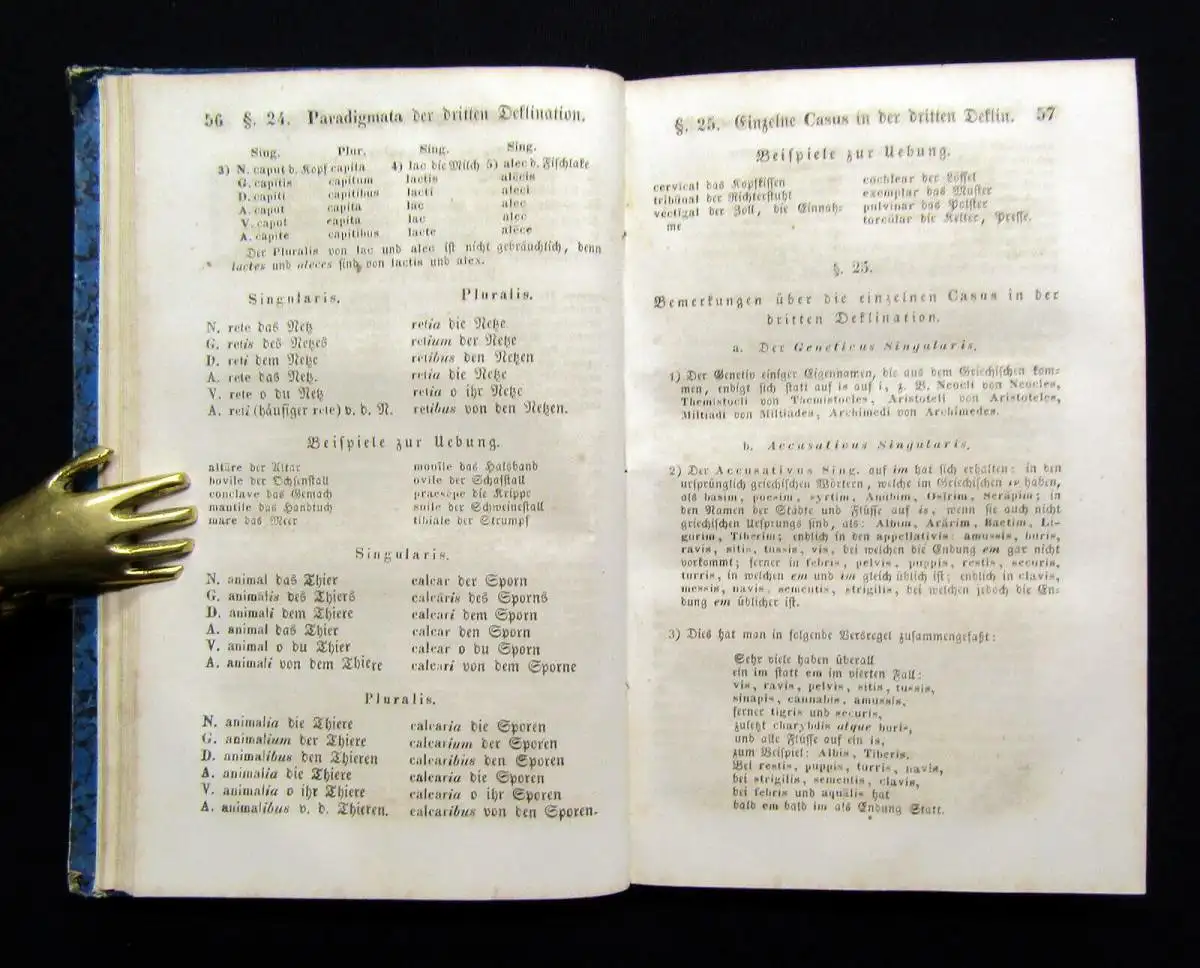 56 §. 24. Paradigmata der dritten Deklination.
Sing. Plur. Sing. Sing.
3) N. caput d. Kopf capita 4) lac die Milch 5) alec d. Fischlake
G. capitis capitum lactis alecis
D. capiti capitibus lacti aleci
A. caput capita lac alec
V. caput capita lac alec
A. capite capitibus lacte alece
Der Pluralis von lac und alec ist nicht gebräuchlich, denn
lactes und aleces sind von lactis und alex.
Singularis. Pluralis.
N. rete das Netz retia die Netze
G. retis des Netzes retium der Netze
D. reti dem Netze retibus den Netzen
A. rete das Netz. retia die Netze
V. rete o du Netz retia o ihr Netze
A. reti (häufiger rete) v. d. N. retibus von den Netzen.
Beispiele zur Uebung.
altāre der Altar monile das Halsband
bovile der Ochsenstall ovile der Schafstall
conclave das Gemach praesēpe die Krippe
mantile das Handtuch suile der Schweinestall
mare das Meer tibiale der Strumpf
Singularis.
N. animal das Thier calcar der Sporn
G. animālis des Thiers calcāris des Sporns
D. animali dem Thiere calcari dem Sporn
A. animal das Thier calcar den Sporn
V. animal o du Thier calcar o du Sporn
A. animali von dem Thiere calcari von dem Sporne
Pluralis.
N. animalia die Thiere calcaria die Sporen
G. animalium der Thiere calcarium der Sporen
D. animalibus den Thieren calcaribus den Sporen
A. animalia die Thiere calcaria die Sporen
V. animalia o ihr Thiere calcaria o ihr Sporen
A. animalibus v. d. Thieren. calcaribus von den Sporen.
§. 25. Einzelne Casus in der dritten Deklin. 57
Beispiele zur Uebung.
cervical das Kopfkissen cochlear der Löffel
tribūnal der Richterstuhl exemplar das Muster
vectīgal der Zoll, die Einnah- pulvinar das Polster
me torcūlar die Kelter, Presse.
§. 25.
Bemerkungen über die einzelnen Casus in der
dritten Deklination.
a. Der Genetivus Singularis.
1) Der Genetiv einiger Eigennamen, die aus dem Griechischen kom-
men, endigt sich statt auf is auf i, z. B. Neocli von Neocles,
Themistocli von Themistocles, Aristoteli von Aristoteles,
Miltiadi von Miltiades, Archimedi von Archimedes.
b. Accusativus Singularis.
2) Der Accusativus Sing. auf im hat sich erhalten: in den
ursprünglich griechischen Wörtern, welche im Griechischen ιν haben,
als basim, poesim, syrtim, Anūbim, Osīrim, Serāpim; in
den Namen der Städte und Flüsse auf is, wenn sie auch nicht
griechischen Ursprungs sind, als: Albim, Arārim, Baetim, Li-
gĕrim, Tiberim; endlich in den appellativis: amussis, buris,
ravis, sitis, tussis, vis, bei welchen die Endung em gar nicht
vorkommt; ferner in febris, pelvis, puppis, restis, securis,
turris, in welchen em und im gleich üblich ist; endlich in clavis,
messis, navis, sementis, strigilis, bei welchen jedoch die En-
dung em üblicher ist.
3) Dies hat man in folgende Versregel zusammengefaßt:
Sehr viele haben überall
ein im statt em im vierten Fall:
vis, ravis, pelvis, sitis, tussis,
sinapis, cannabis, amussis,
ferner tigris und securis,
zuletzt charybdis atque buris,
und alle Flüsse auf ein is,
zum Beispiel: Albis, Tiberis.
Bei restis, puppis, turris, navis,
bei strigilis, sementis, clavis,
bei febris und aquālis hat
bald em bald im als Endung Statt.